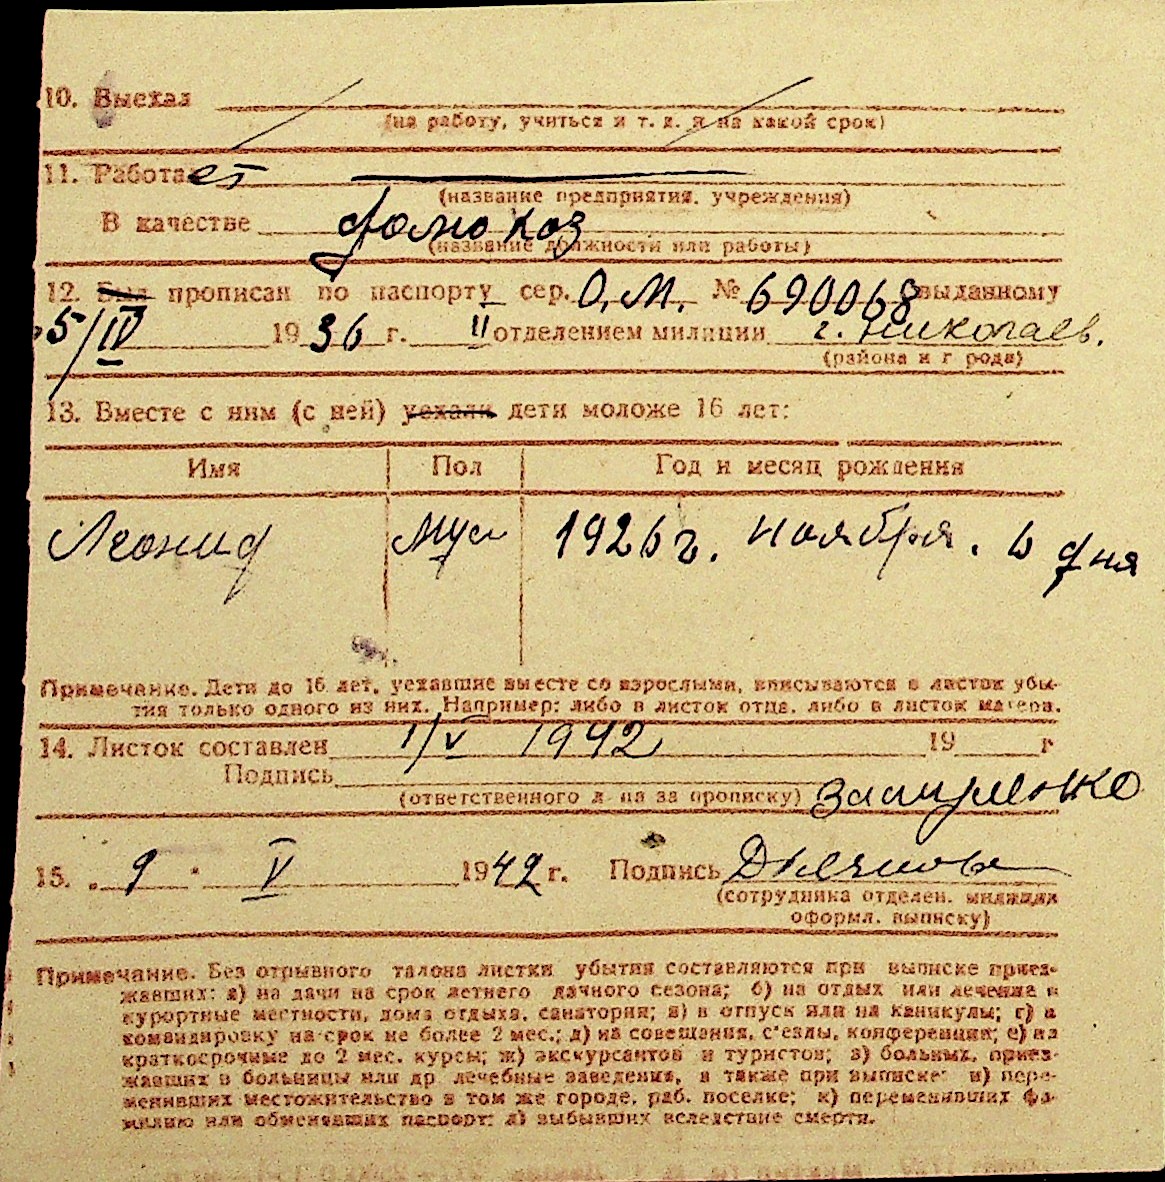 10. Выехал
(на работу, учиться и т. д. и на какой срок)
11. Работает
(название предприятия, учреждения)
В качестве домохоз
(название должности или работы)
12. Был прописан по паспорту сер. О.М. № 690068 выданному
5/IV 1936 г. II отделением милиции г. Николаев.
(района и города)
13. Вместе с ним (с ней) уехали дети моложе 16 лет:
Имя Пол Год и месяц рождения
Леонид Муж 1926 г. ноября. 6 дня
Примечание. Дети до 16 лет, уехавшие вместе со взрослыми, вписываются в листок убы-
тия только одного из них. Например: либо в листок отца, либо в листок матери.
14. Листок составлен 1/V 1942 19 г
Подпись
(ответственного л-ца за прописку)
15. 9 V 1942 г. Подпись
(сотрудника отделен. милиции
оформл. выписку)
Примечание. Без отрывного талона листки убытия составляются при выписке приез-
жавших: а) на дачи на срок летнего дачного сезона; б) на отдых или лечение в
курортные местности, дома отдыха, санатории; в) в отпуск или на каникулы; г) в
командировку на срок не более 2 мес.; д) на совещания, с'езды, конференции; е) на
краткосрочные до 2 мес. курсы; ж) экскурсантов и туристов; з) больных, приез-
жавших в больницы или др лечебные заведения, а также при выписке: и) пере-
менивших местожительство в том же городе, раб. поселке; к) переменивших фа-
милию или обменявших паспорт; л) выбывших вследствие смерти.